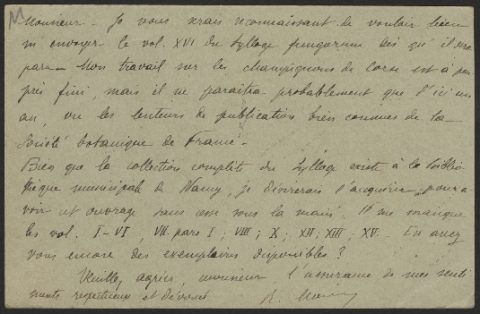 Monsieur - Je vous serais reconnaissant de vouloir bien
m'envoyer le vol. XVI du Sylloge fungorum dès qu'il sera
paru - Mon travail sur les champignons de Corse est à peu
près fini, mais il ne paraîtra probablement que d'ici un
an, vu les lenteurs de publication bien connues de la
Société botanique de France -
Bien que la collection complète du Sylloge existe à la biblio
thèque municipale de Nancy, je désirerais l'acquérir pour a
voir cet ouvrage sans cesse sous la main. Il me manque
les vol. I-VI, VII pars I; VIII; X; XII; XIII; XV. En avez
vous encore des exemplaires disponibles?
Veuillez agréer, monsieur l'assurance de mes senti
ments respectueux et dévoués